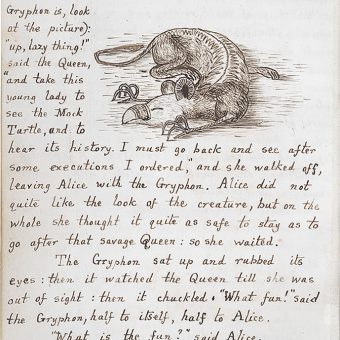 Gryphon is, look
at the picture):
"up, lazy thing!"
said the Queen,
"and take this
young lady to
see the Mock
Turtle, and to
hear its history. I must go back and see after
some executions I ordered," and she walked off,
leaving Alice with the Gryphon. Alice did not
quite like the look of the creature, but on the
whole she thought it quite as safe to stay as to
go after that savage Queen: so she waited.
The Gryphon sat up and rubbed its
eyes: then it watched the Queen till she was
out of sight: then it chuckled. "What fun!" said
the Gryphon, half to itself, half to Alice.
"What is the fun?" said Alice.